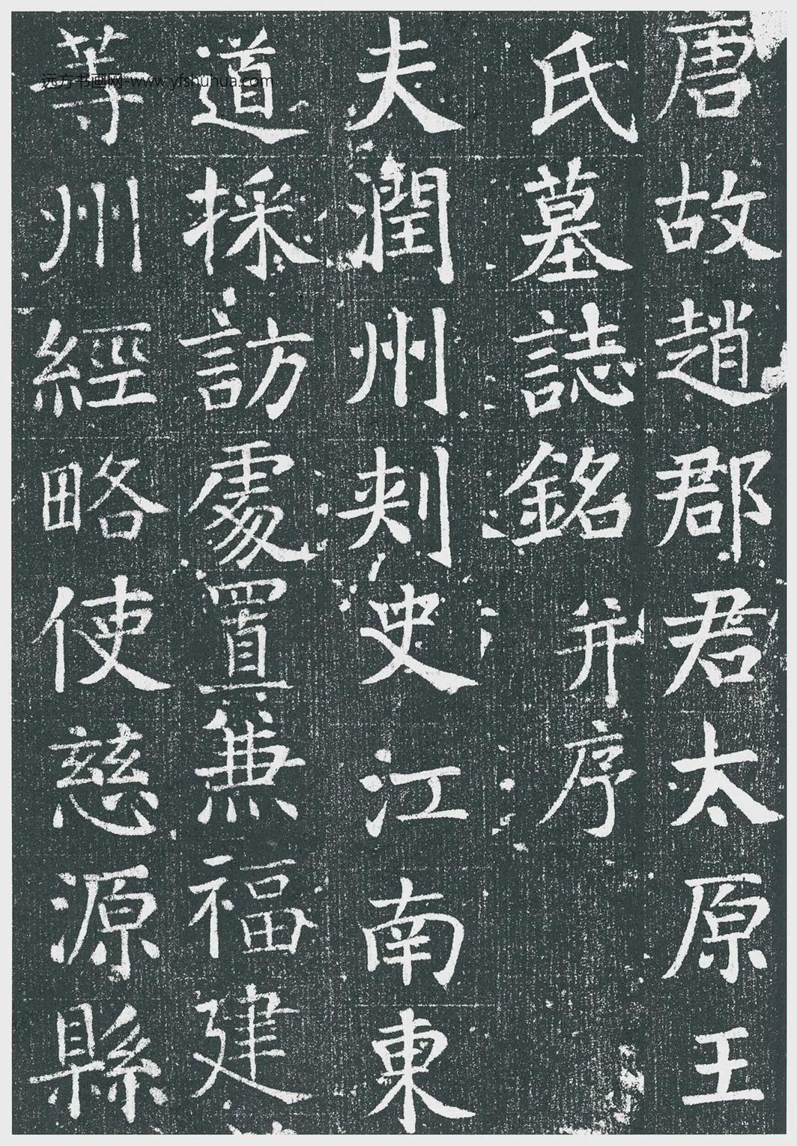 唐故趙郡君太原王
氏墓誌銘并序
夫潤州刾史江南東
道採訪處置兼福建
等州經略使慈源縣
远方书画网 www.yfshuhua.com